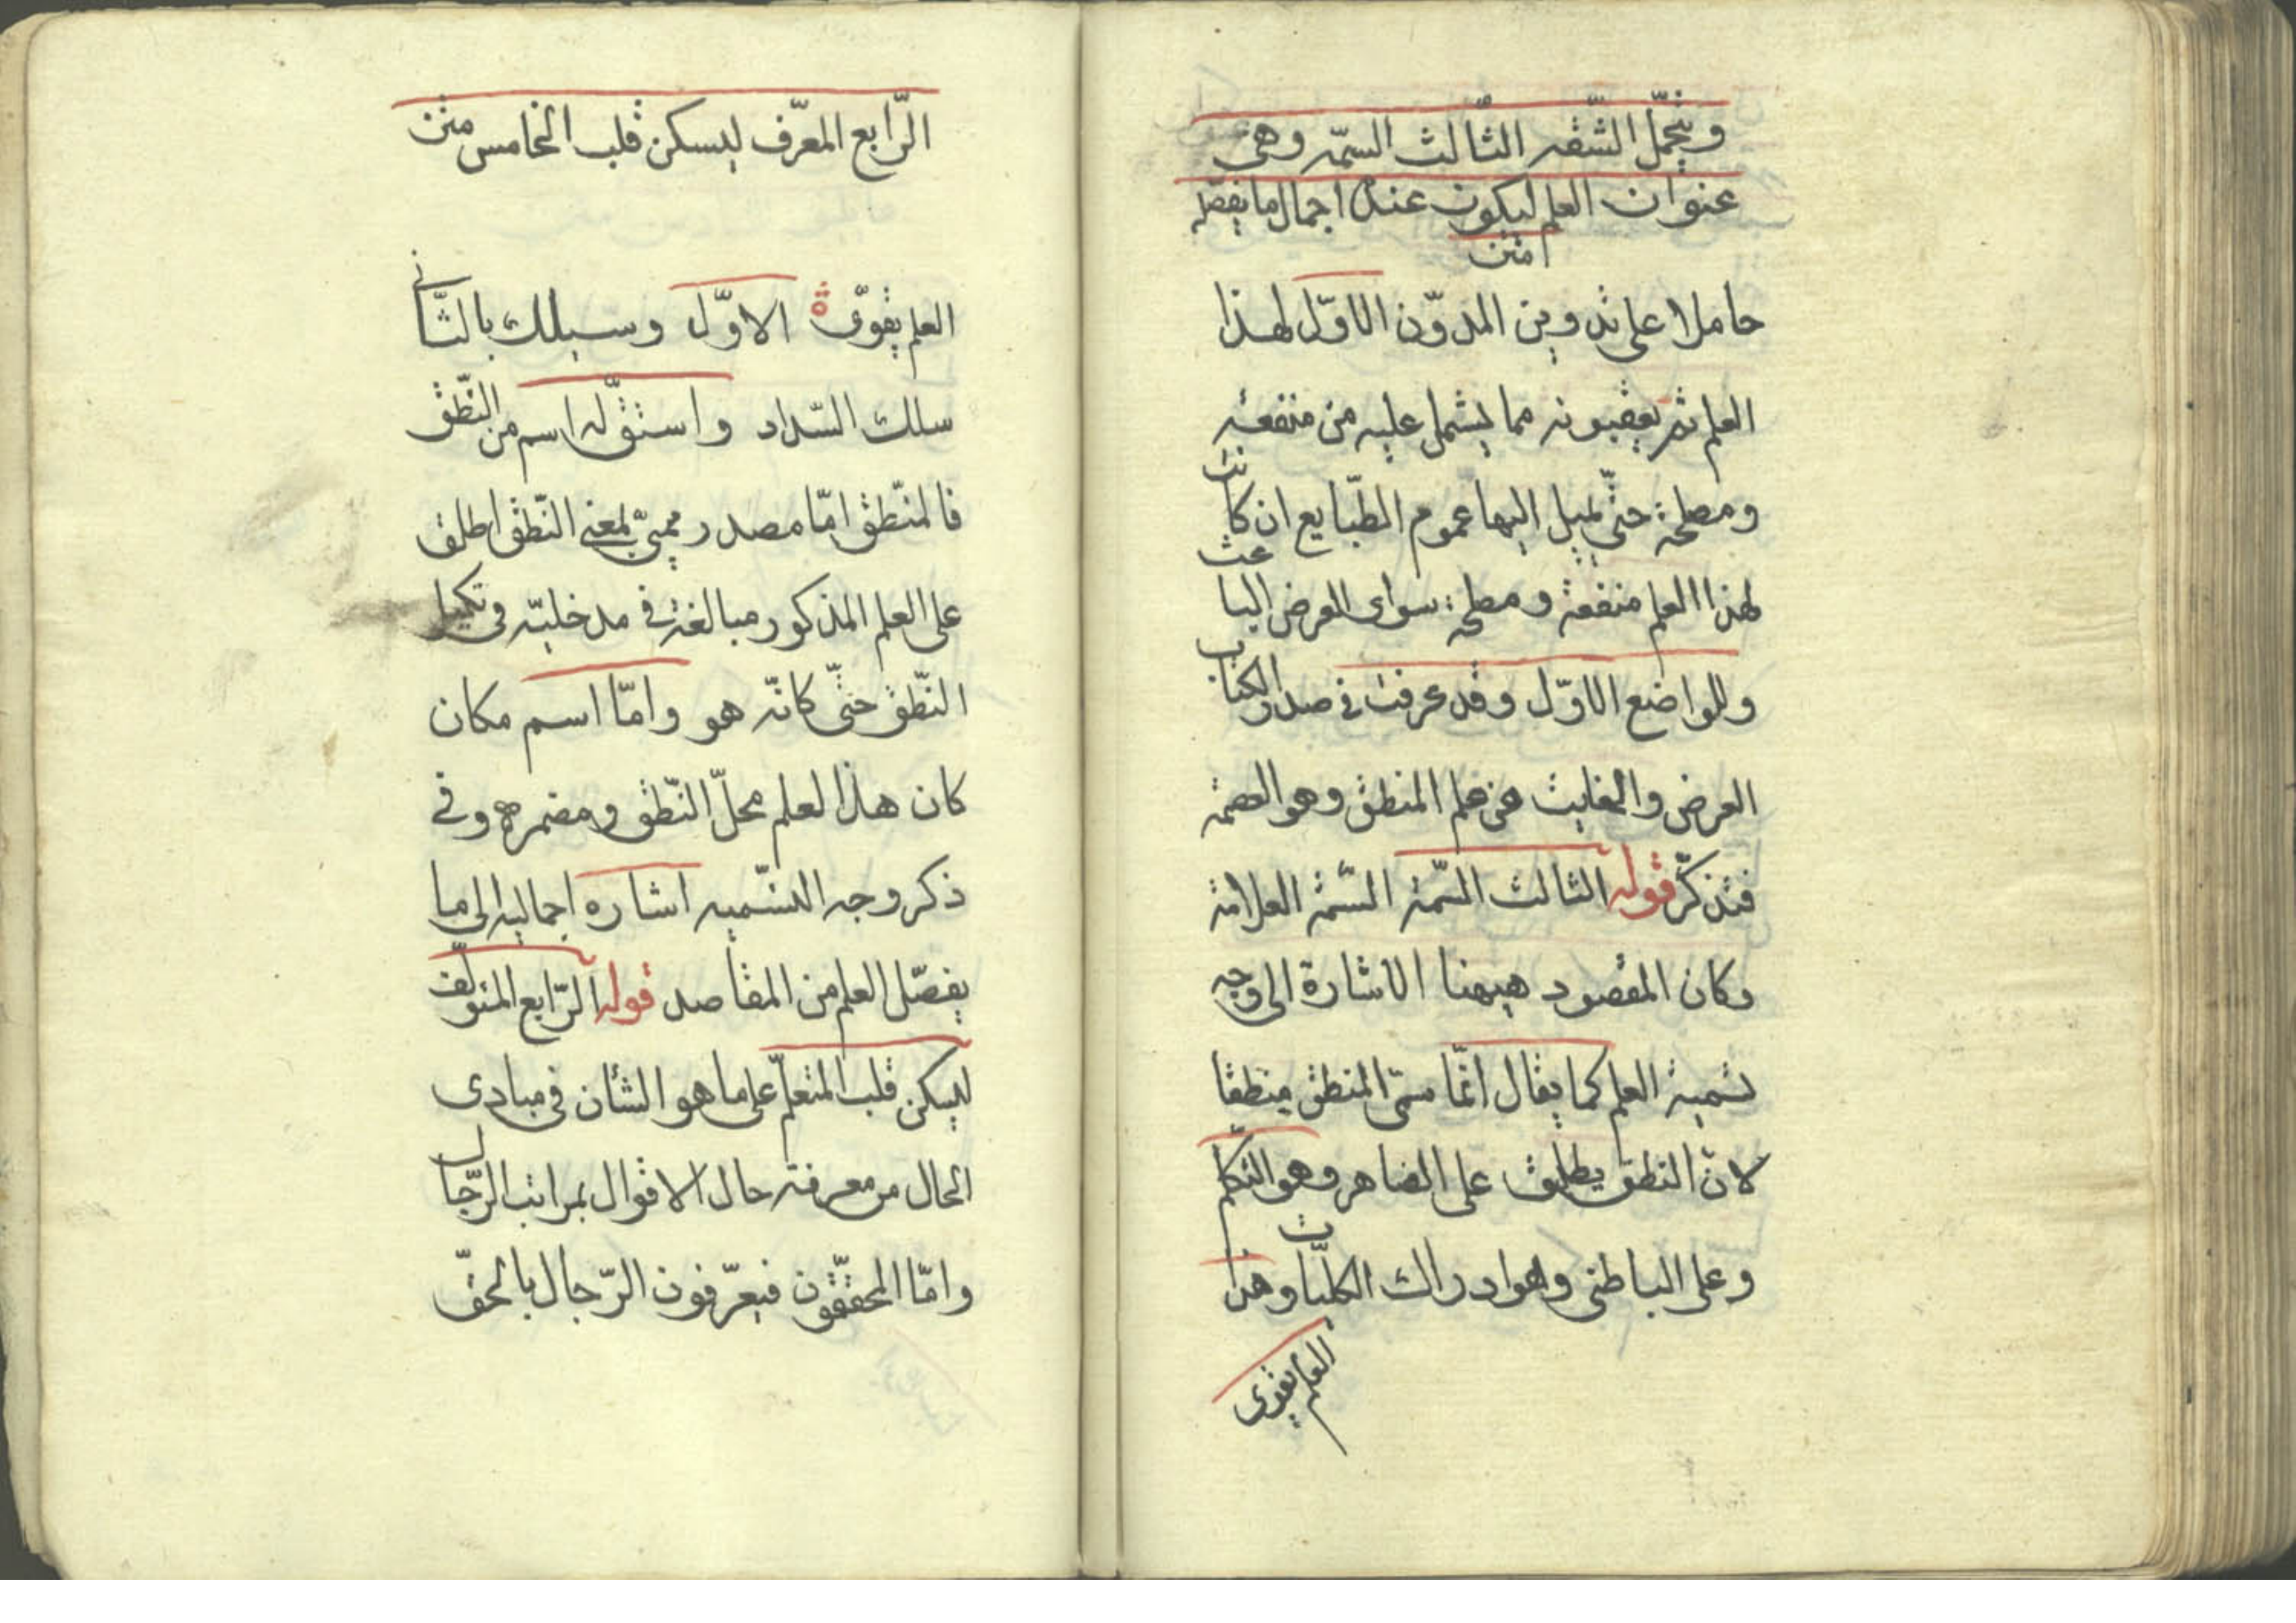 ويتحمّل الشقه الثالث السمّه وهى
عنوان العلم ليكون عنده اجمال ما يفصّله
متن
حاملا على تدوين المدوّن الاوّل لهذا
العلم ثم يعقبونه مما يشمل عليه من منفعته
ومصلحة حتّى يميل اليها عموم الطّبايع ان كانت
لهذا العلم منفعة ومصلحة سواى الغرض الباعث
وللواضع الاوّل وقد عرفت فى صدر الكتاب
الغرض والغايت من علم المنطق وهو العصمة
فتذكّر قوله الثالث السّمة السّمة العلامة
وكان المقصود هيهنا الاشارة الى وجه
تسمية العلم كما يقال انّما سمّى المنطق منطقا
لانّ النطق يطلق على الضاهر وهو التكلّم
وعلى الباطنى وهو ادراك الكليّات وهذا
العلم يقوى
الرّابع المعرّف ليسكن قلب الخامس متن
العلم يقوّى الاوّل وسبلك بالثّانى
سلك السّداد واستقّ له اسم من النّطق
فالمنّطق امّا مصدر ميمىّ بمعنى النّطق اطلق
على العلم المذكور مبالغة فى مدخليّته فى تكميل
النّطق حتّى كانّه هو وامّا اسم مكان
كان هذا لعلم محلّ النّطق ومضمره وفى
ذكر وجه التسّميه اشاره اجماليه الى ما
يفصّل العلم من المقاصد قوله الرّابع المئولّف
ليسكن قلب المتعلّم على ما هو الشأن فى مبادى
الحال من معرفة حال الاقوال بمراتب الرّجال
وامّا المحقّقون فيعرّفون الرّجال بالحقّ